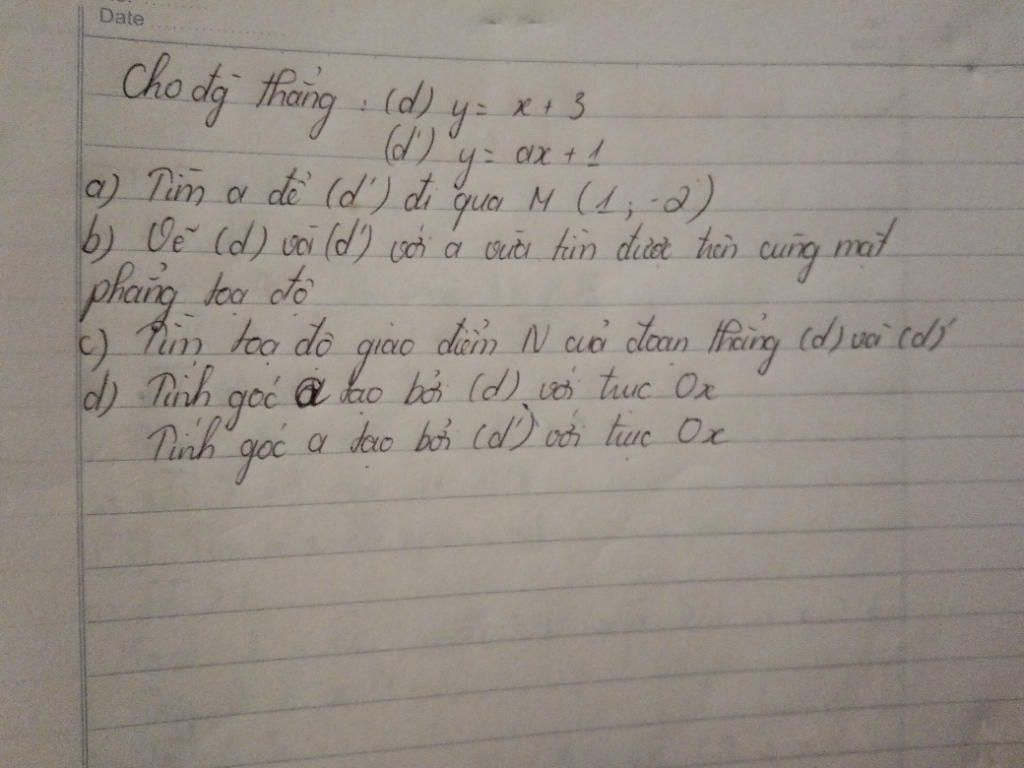 Date
Cho đg thẳng : (d) y = x + 3
(d') y = ax + 1
a) Tìm a để (d') đi qua M (1 ; -2)
b) Vẽ (d) và (d') với a vừa tìm được trên cùng mặt
phẳng toạ độ
c) Tìm toạ độ giao điểm N của đoạn thẳng (d) và (d)'
d) Tính góc a tạo bởi (d) với trục Ox
Tính góc a tạo bởi (d') với trục Ox